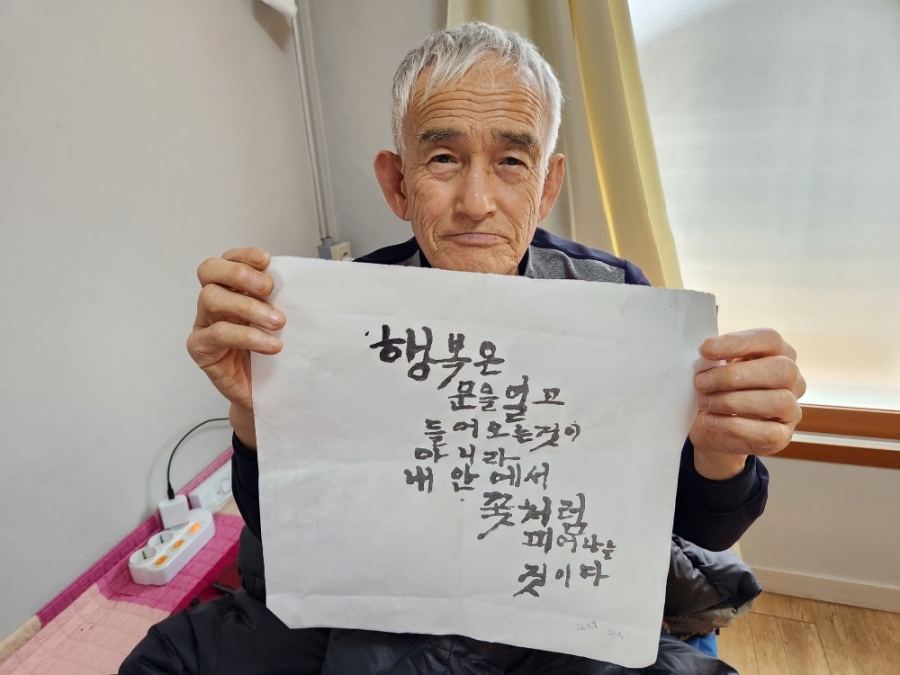 행복은
문을 열고
들어오는것이
아니라
내 안에서
꽃처럼
피어나는
것이다